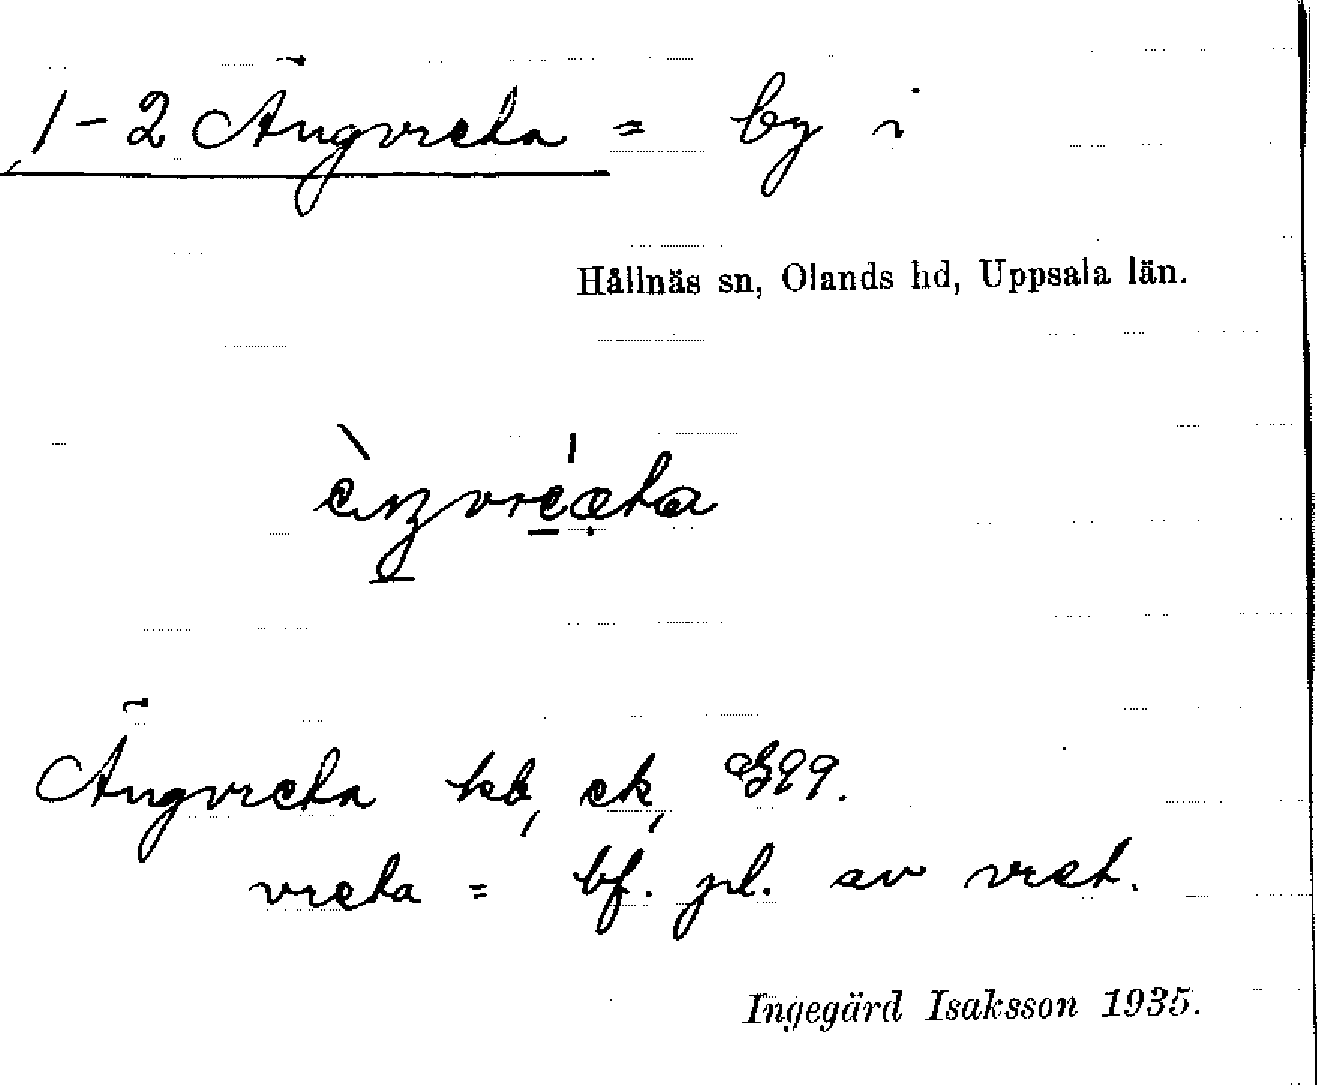 1-2 Ängvreta = by i
Hållnäs sn, Olands hd, Uppsala län.
Ängvreta kb, ek,
vreta = bf. pl. av vret.
Ingegärd Isaksson 1935.